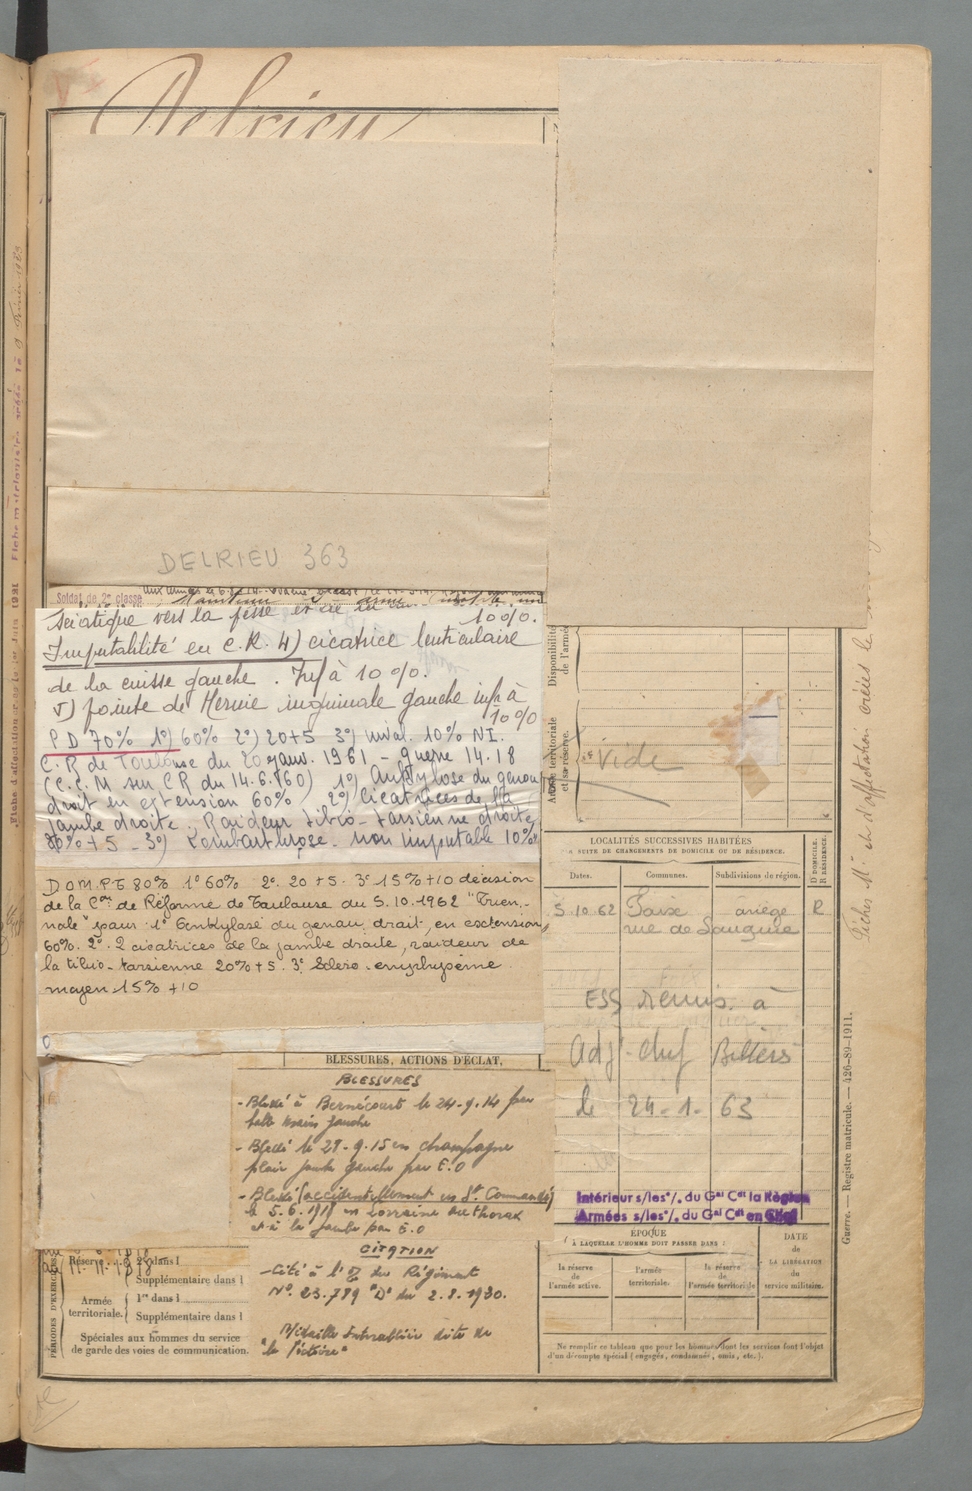 Delrieu
DELRIEU 363
Soldat de 2e classe
sciatique vers la fesse et
10%.
Imputabilité en C.R. 4) cicatrice lenticulaire
de la cuisse gauche. Inf à 10%.
5) pointe de Hernie inguinale gauche inf à
10%
P D 70% 1°) 60% 2°) 20+5 3°) inval. 10% NI.
C.R de Toulouse du 20 janv. 1961 - guerre 14.18
(C.C.M sur CR du 14.6.60) 1°) Ankylose du genou
droit en extension 60% 2°) Cicatrices de la
jambe droite. Raideur tibio-tarsienne droite,
20% + 5 - 3°) Lombarthrose. non imputable 10%
D.O.M.P.G 80% 1° 60% 2° 20 + 5. 3° 15% + 10 décision
de la Con de Réforme de Toulouse du 5.10.1962 "Trien-
nale" pour 1° Ankylose du genou droit, en extension,
60%. 2° 2 cicatrices de la jambe droite, raideur de
la tibio-tarsienne 20% + 5. 3° Scléro-emphysème
moyen 15% + 10
BLESSURES, ACTIONS D'ÉCLAT,
BLESSURES
- Blessé à Bernécourt le 24-9-14 par
balle main gauche
- Blessé le 29-9-15 en champagne
plaie jambe gauche par E.O
- Blessé (accidentellement en St Commandé)
le 5.6.1918 en Lorraine au thorax
et à la jambe par E.O
CITATION
- Cité à l'O/ du Régiment
N° 23.789 "D" du 2.8.1930.
Médaille Interalliée dite de
"la Victoire"
PÉRIODES D'EXERCICES
Réserve
2e dans l
Supplémentaire dans l
Armée
territoriale.
1re dans l
Supplémentaire dans l
Spéciales aux hommes du service
de garde des voies de communication.
Disponibilité
de l'armée
Armée territoriale
et sa réserve.
Vide
LOCALITÉS SUCCESSIVES HABITÉES
PAR SUITE DE CHANGEMENTS DE DOMICILE OU DE RÉSIDENCE.
Dates.
Communes.
Subdivisions de région.
D DOMICILE.
R RÉSIDENCE.
5.10.62
ariège
R
rue de
ESS remis à
Adj-chef
le 24-1-63
Intérieur s/les°/. du Gal Cdt la Région
Armées s/les°/. du Gal Cdt en Chef
ÉPOQUE
À LAQUELLE L'HOMME DOIT PASSER DANS :
la réserve
de
l'armée active.
l'armée
territoriale.
la réserve
de
l'armée territoriale
DATE
de
LA LIBÉRATION
du
service militaire.
Ne remplir ce tableau que pour les hommes dont les services font l'objet
d'un décompte spécial (engagés, condamnés, omis, etc.).
Fiches Mle et d'affectation créées le
Guerre. — Registre matricule. — 426-89-1911.